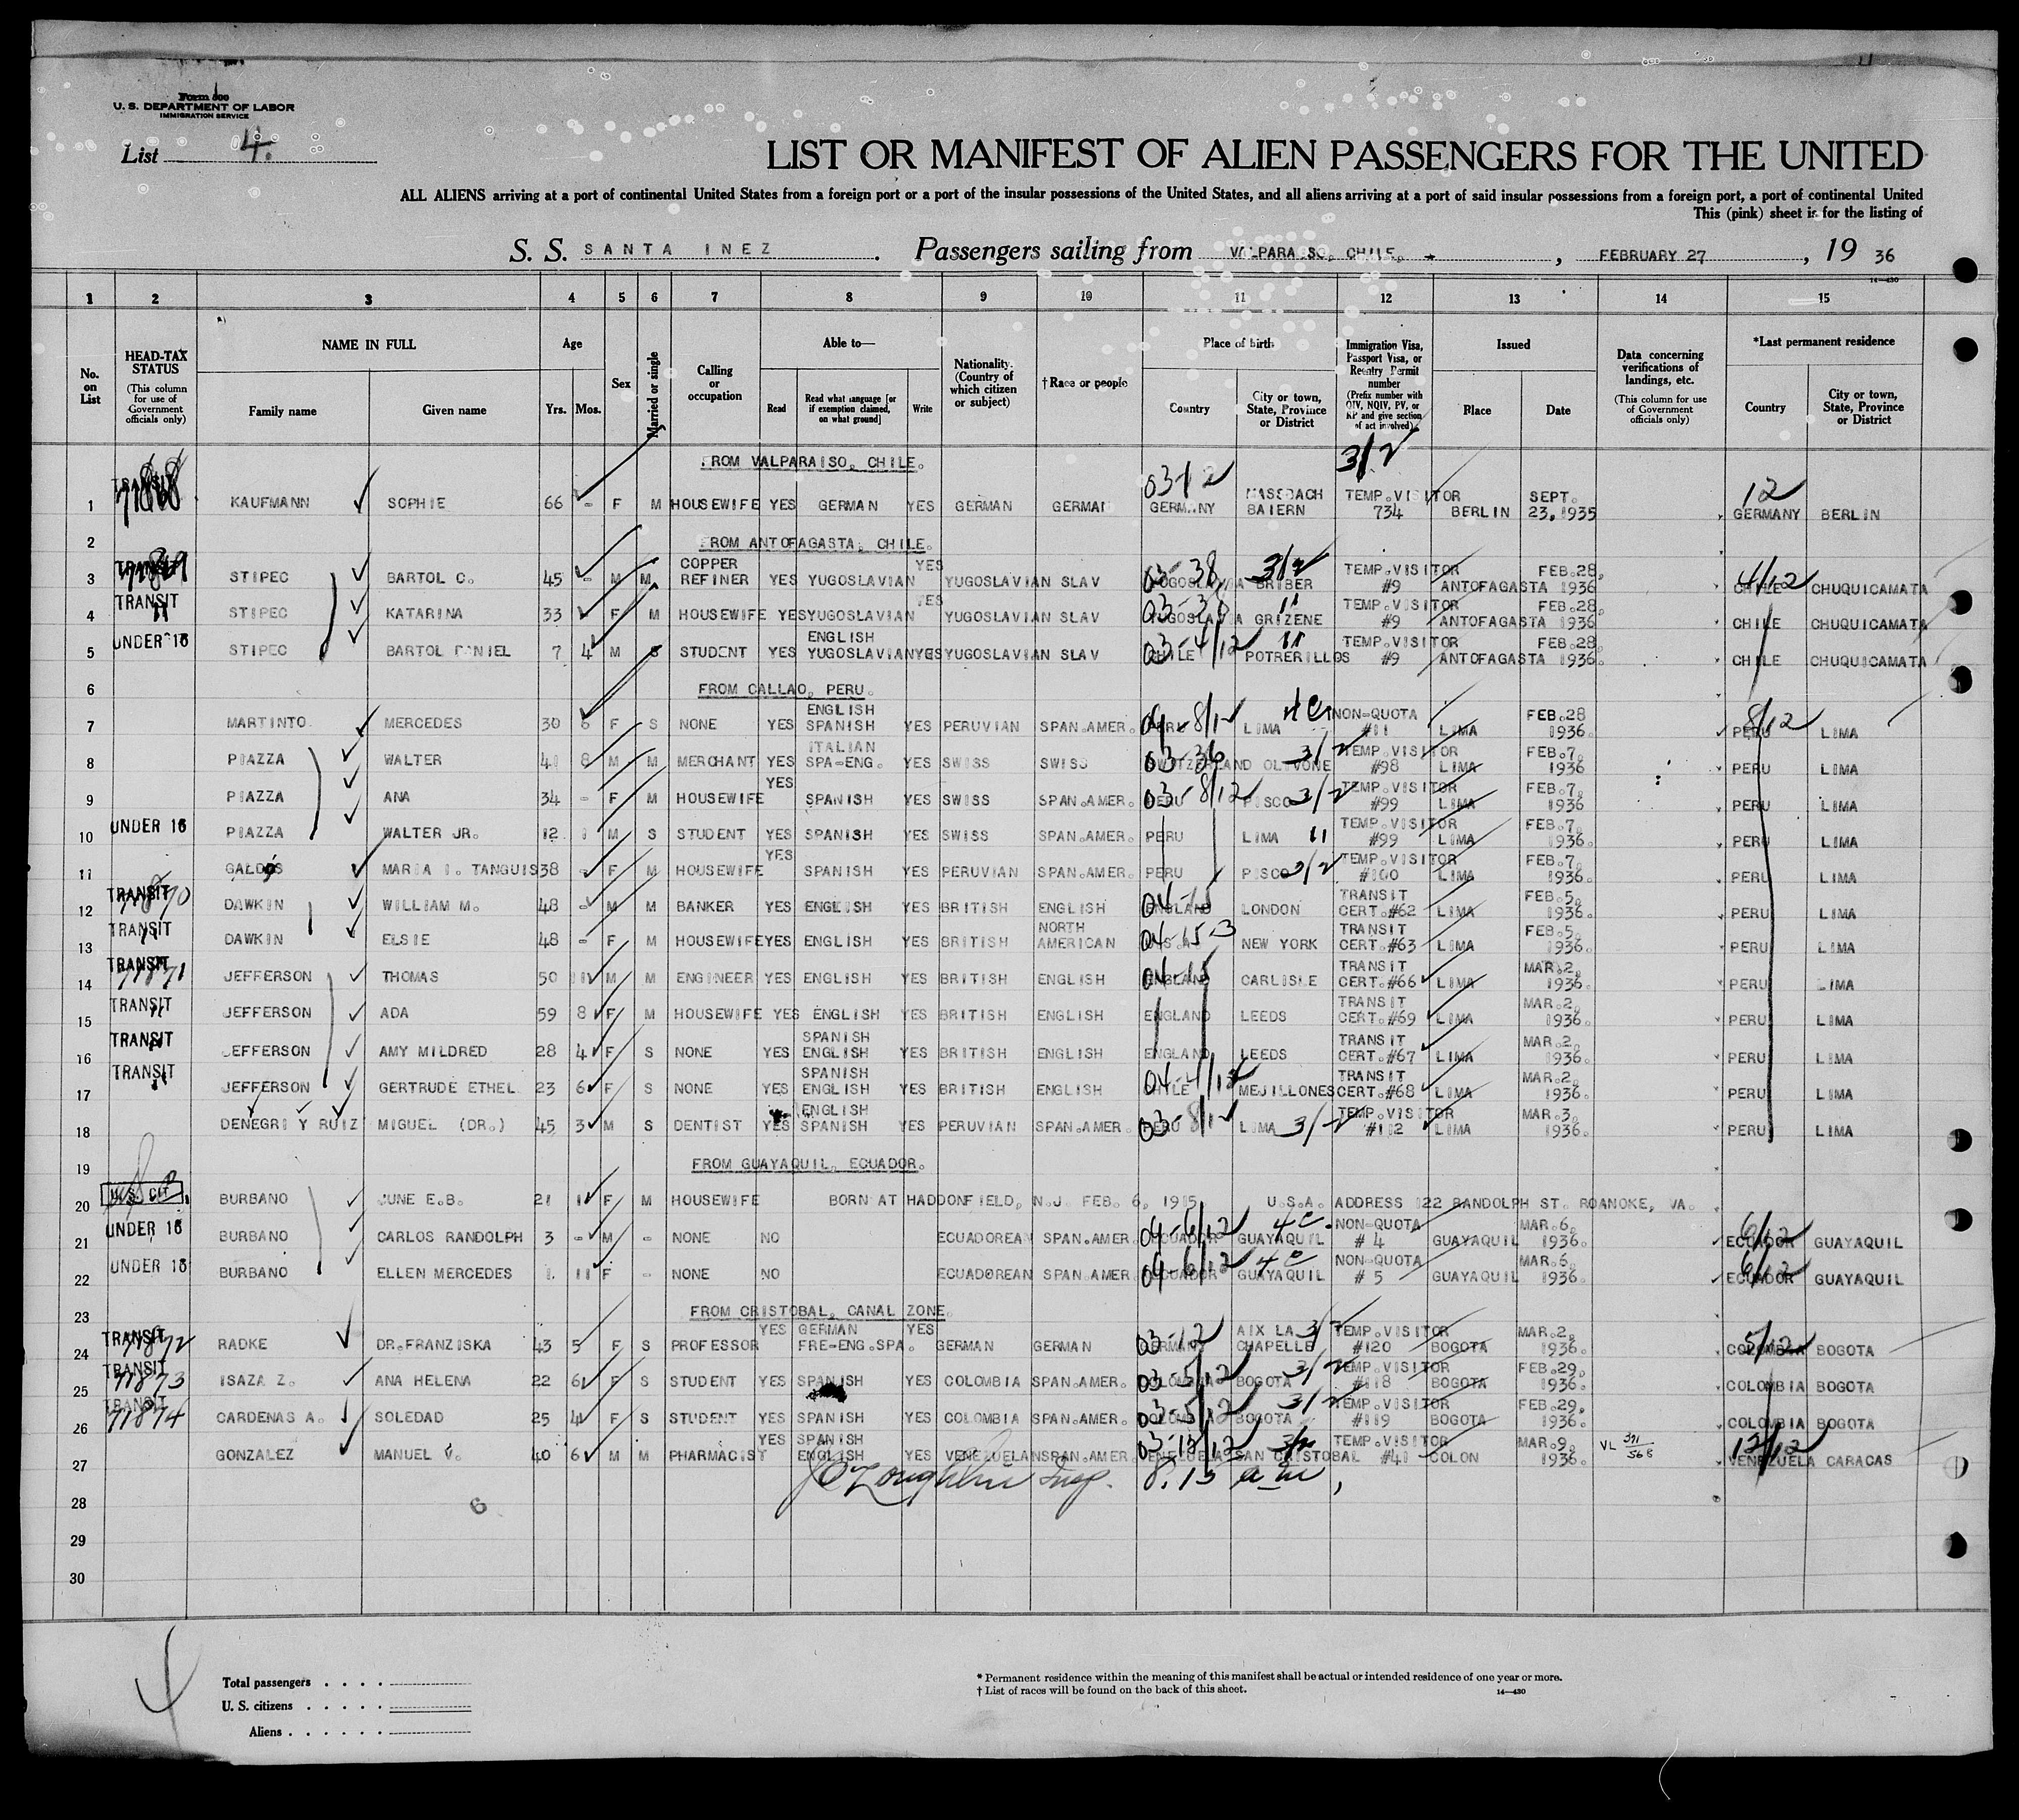 Form 500
U. S. DEPARTMENT OF LABOR
IMMIGRATION SERVICE
List 4.
LIST OR MANIFEST OF ALIEN PASSENGERS FOR THE UNITED
ALL ALIENS arriving at a port of continental United States from a foreign port or a port of the insular possessions of the United States, and all aliens arriving at a port of said insular possessions from a foreign port, a port of continental United
This (pink) sheet is for the listing of
S. S. SANTA INEZ . Passengers sailing from VALPARAISO, CHILE. , FEBRUARY 27 , 19 36
14—430
1 2 3 4 5 6 7 8 9 10 11 12 13 14 15
No. on List
HEAD-TAX STATUS (This column for use of Government officials only)
NAME IN FULL Family name Given name
Age Yrs. Mos.
Sex
Married or single
Calling or occupation
Able to— Read Read what language [or if exemption claimed, on what ground] Write
Nationality. (Country of which citizen or subject)
†Race or people
Place of birth Country City or town, State, Province or District
Immigration Visa, Passport Visa, or Reentry Permit number (Prefix number with QIV, NQIV, PV, or RP and give section of act involved)
Issued Place Date
Data concerning verifications of landings, etc. (This column for use of Government officials only)
*Last permanent residence Country City or town, State, Province or District
FROM VALPARAISO, CHILE. 3/2
1 TRANSIT KAUFMANN SOPHIE 66 - F M HOUSEWIFE YES GERMAN YES GERMAN GERMAN 03-12 GERMANY MASSBACH BAIERN TEMP.VISITOR 734 BERLIN SEPT. 23, 1935 12 GERMANY BERLIN
2 FROM ANTOFAGASTA, CHILE.
3 TRANSIT STIPEC BARTOL C. 45 - M M COPPER REFINER YES YUGOSLAVIAN YES YUGOSLAVIAN SLAV 03-38 YUGOSLAVIA BRIBER 3/2 TEMP.VISITOR #9 ANTOFAGASTA FEB.28, 1936 4/12 CHILE CHUQUICAMATA
4 TRANSIT STIPEC KATARINA 33 F M HOUSEWIFE YES YUGOSLAVIAN YES YUGOSLAVIAN SLAV 03-38 YUGOSLAVIA GRIZENE " TEMP.VISITOR #9 ANTOFAGASTA FEB.28, 1936. CHILE CHUQUICAMATA
5 UNDER 16 STIPEC BARTOL DANIEL 7 4 M S STUDENT YES ENGLISH YUGOSLAVIAN YES YUGOSLAVIAN SLAV 03-4/12 CHILE POTRERILLOS " TEMP.VISITOR #9 ANTOFAGASTA FEB.28, 1936. CHILE CHUQUICAMATA
6 FROM CALLAO, PERU.
7 MARTINTO MERCEDES 30 6 F S NONE YES ENGLISH SPANISH YES PERUVIAN SPAN.AMER. 04-8/12 PERU LIMA 4c NON-QUOTA #11 LIMA FEB.28 1936. 8/12 PERU LIMA
8 PIAZZA WALTER 41 8 M M MERCHANT YES ITALIAN SPA-ENG. YES SWISS SWISS 03-36 SWITZERLAND OLIVONE 3/2 TEMP.VISITOR #98 LIMA FEB.7, 1936 PERU LIMA
9 PIAZZA ANA 34 - F M HOUSEWIFE YES SPANISH YES SWISS SPAN.AMER. 03-8/12 PERU PISCO 3/2 TEMP.VISITOR #99 LIMA FEB.7, 1936 PERU LIMA
10 UNDER 16 PIAZZA WALTER JR. 12 1 M S STUDENT YES SPANISH YES SWISS SPAN.AMER. PERU LIMA " TEMP.VISITOR #99 LIMA FEB.7, 1936. PERU LIMA
11 GALDOS MARIA I. TANGUIS 38 - F M HOUSEWIFE YES SPANISH YES PERUVIAN SPAN.AMER. PERU PISCO 3/2 TEMP.VISITOR #100 LIMA FEB.7, 1936. PERU LIMA
12 TRANSIT 71870 DAWKIN WILLIAM M. 48 - M M BANKER YES ENGLISH YES BRITISH ENGLISH 04-15 ENGLAND LONDON TRANSIT CERT.#62 LIMA FEB.5, 1936. PERU LIMA
13 TRANSIT " DAWKIN ELSIE 48 - F M HOUSEWIFE YES ENGLISH YES BRITISH NORTH AMERICAN 04-15-3 U.S.A. NEW YORK TRANSIT CERT.#63 LIMA FEB.5, 1936. PERU LIMA
14 TRANSIT 71871 JEFFERSON THOMAS 50 11 M M ENGINEER YES ENGLISH YES BRITISH ENGLISH 04-15 ENGLAND CARLISLE TRANSIT CERT.#66 LIMA MAR.2, 1936. PERU LIMA
15 TRANSIT " JEFFERSON ADA 59 8 F M HOUSEWIFE YES ENGLISH YES BRITISH ENGLISH ENGLAND LEEDS TRANSIT CERT.#69 LIMA MAR.2, 1936. PERU LIMA
16 TRANSIT " JEFFERSON AMY MILDRED 28 4 F S NONE YES SPANISH ENGLISH YES BRITISH ENGLISH ENGLAND LEEDS TRANSIT CERT.#67 LIMA MAR.2, 1936. PERU LIMA
17 TRANSIT " JEFFERSON GERTRUDE ETHEL 23 6 F S NONE YES SPANISH ENGLISH YES BRITISH ENGLISH 04-4/12 CHILE MEJILLONES TRANSIT CERT.#68 LIMA MAR.2, 1936. PERU LIMA
18 DENEGRI Y RUIZ MIGUEL (DR.) 45 3 M S DENTIST YES ENGLISH SPANISH YES PERUVIAN SPAN.AMER. 03-8/12 PERU LIMA 3/2 TEMP.VISITOR #112 LIMA MAR.3, 1936. PERU LIMA
19 FROM GUAYAQUIL, ECUADOR.
20 U.S. CIT. BURBANO JUNE E.B. 21 1 F M HOUSEWIFE BORN AT HADDONFIELD, N.J. FEB. 6, 1915 U.S.A. ADDRESS 122 RANDOLPH ST. ROANOKE, VA.
21 UNDER 16 BURBANO CARLOS RANDOLPH 3 - M - NONE NO ECUADOREAN SPAN.AMER. 04-6/12 ECUADOR GUAYAQUIL 4c NON-QUOTA # 4 GUAYAQUIL MAR.6, 1936. 6/12 ECUADOR GUAYAQUIL
22 UNDER 16 BURBANO ELLEN MERCEDES 1 11 F - NONE NO ECUADOREAN SPAN.AMER. 04-6/12 ECUADOR GUAYAQUIL 4c NON-QUOTA # 5 GUAYAQUIL MAR.6, 1936. 6/12 ECUADOR GUAYAQUIL
23 FROM CRISTOBAL, CANAL ZONE.
24 TRANSIT 71872 RADKE DR.FRANZISKA 43 5 F S PROFESSOR YES GERMAN FRE-ENG.SPA. YES GERMAN GERMAN 03-12 GERMANY AIX LA CHAPELLE 3/2 TEMP.VISITOR #120 BOGOTA MAR.2, 1936 5/12 COLOMBIA BOGOTA
25 TRANSIT 71873 ISAZA Z. ANA HELENA 22 6 F S STUDENT YES SPANISH YES COLOMBIA SPAN.AMER. 03-5/12 COLOMBIA BOGOTA 3/2 TEMP.VISITOR #118 BOGOTA FEB.29, 1936. COLOMBIA BOGOTA
26 TRANSIT 71874 CARDENAS A. SOLEDAD 25 4 F S STUDENT YES SPANISH YES COLOMBIA SPAN.AMER. 03-5/12 COLOMBIA BOGOTA 3/2 TEMP.VISITOR #119 BOGOTA FEB.29, 1936. COLOMBIA BOGOTA
27 GONZALEZ MANUEL V. 40 6 M M PHARMACIST YES SPANISH ENGLISH YES VENEZUELAN SPAN.AMER. 03-12/12 VENEZUELA SAN CRISTOBAL 3/2 TEMP.VISITOR #41 COLON MAR.9, 1936. VL 391/568 12/12 VENEZUELA CARACAS
Insp. 8.15 am,
28
29
30
4
Total passengers . . . .
U. S. citizens . . . . .
Aliens . . . . . .
* Permanent residence within the meaning of this manifest shall be actual or intended residence of one year or more.
† List of races will be found on the back of this sheet.
14—430